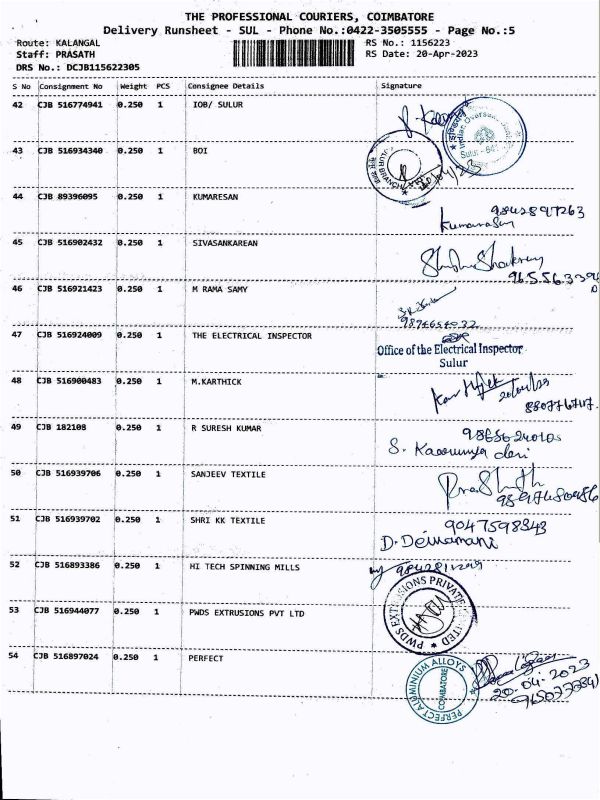 THE PROFESSIONAL COURIERS, COIMBATORE
Delivery Runsheet - SUL - Phone No.:0422-3505555 - Page No.:5
Route: KALANGAL RS No.: 1156223
Staff: PRASATH RS Date: 20-Apr-2023
DRS No.: DCJB115622305
S No Consignment No Weight PCS Consignee Details Signature
42 CJB 516774941 0.250 1 IOB/ SULUR
43 CJB 516934340 0.250 1 BOI
44 CJB 89396095 0.250 1 KUMARESAN
9842897263
Kumaresan
45 CJB 516902432 0.250 1 SIVASANKAREAN
46 CJB 516921423 0.250 1 M RAMA SAMY
47 CJB 516924009 0.250 1 THE ELECTRICAL INSPECTOR
Office of the Electrical Inspector
Sulur
48 CJB 516900483 0.250 1 M.KARTHICK
49 CJB 182108 0.250 1 R SURESH KUMAR
S.
50 CJB 516939706 0.250 1 SANJEEV TEXTILE
51 CJB 516939702 0.250 1 SHRI KK TEXTILE
9047598343
D. Deivamani
52 CJB 516893386 0.250 1 HI TECH SPINNING MILLS
53 CJB 516944077 0.250 1 PWDS EXTRUSIONS PVT LTD
PWDS EXTRUSIONS PRIVATE LIMITED
54 CJB 516897024 0.250 1 PERFECT
PERFECT ALUMINIUM ALLOYS
COIMBATORE
20-04-2023